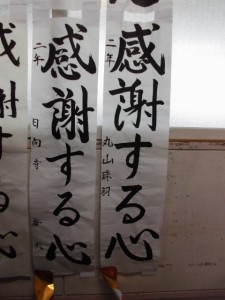 感謝する心
二年
丸山珠羽
感謝する心
二年
感謝する心